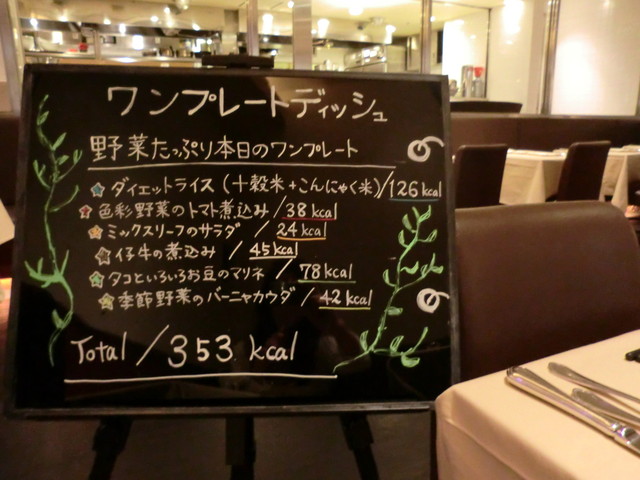 ワンプレートディッシュ
野菜たっぷり本日のワンプレート
☆ダイエットライス(十穀米+こんにゃく米)/126kcal
☆色彩野菜のトマト煮込み/38kcal
☆ミックスリーフのサラダ/24kcal
☆仔牛の煮込み/45kcal
☆タコといろいろお豆のマリネ/78kcal
☆季節野菜のバーニャカウダ/42kcal
Total/353kcal